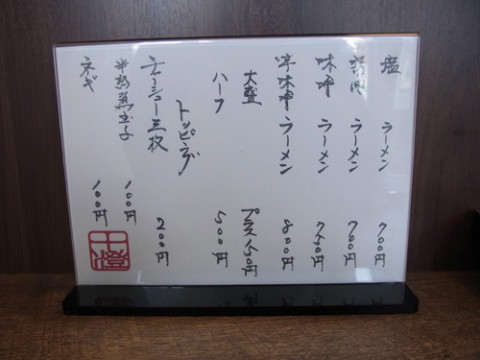 塩 ラーメン 700円
醤油 ラーメン 700円
味噌 ラーメン 750円
辛味噌 ラーメン 800円
大盛 プラス150円
ハーフ 500円
トッピング
チャーシュー三枚 200円
半熟煮玉子 100円
ネギ 100円